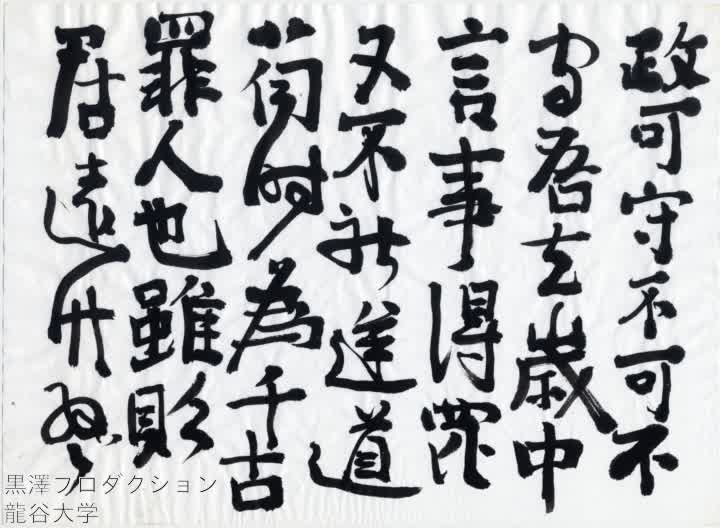 政可守不可不
守吾去歲中
言事得罪
又不能逆道
苟時為千古
罪人也雖貶
居遠
黒澤プロダクション
龍谷大学